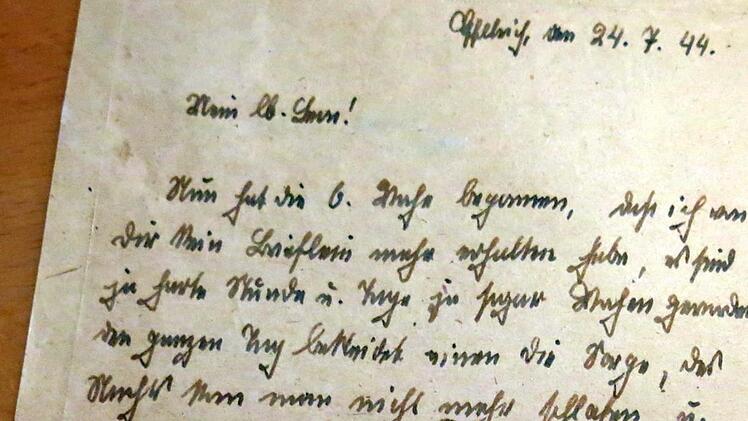 den 24. 7. 44.
Mein lb. Bern!
Nun hat die 6. Woche begonnen, daß ich von
Dir kein Brieflein mehr erhalten habe, es sind
ja harte Stunden u. Tage ja sogar Wochen geworden
den ganzen Tag begleitet einen die Sorge, des
Nachts kann man nicht mehr schlafen u.